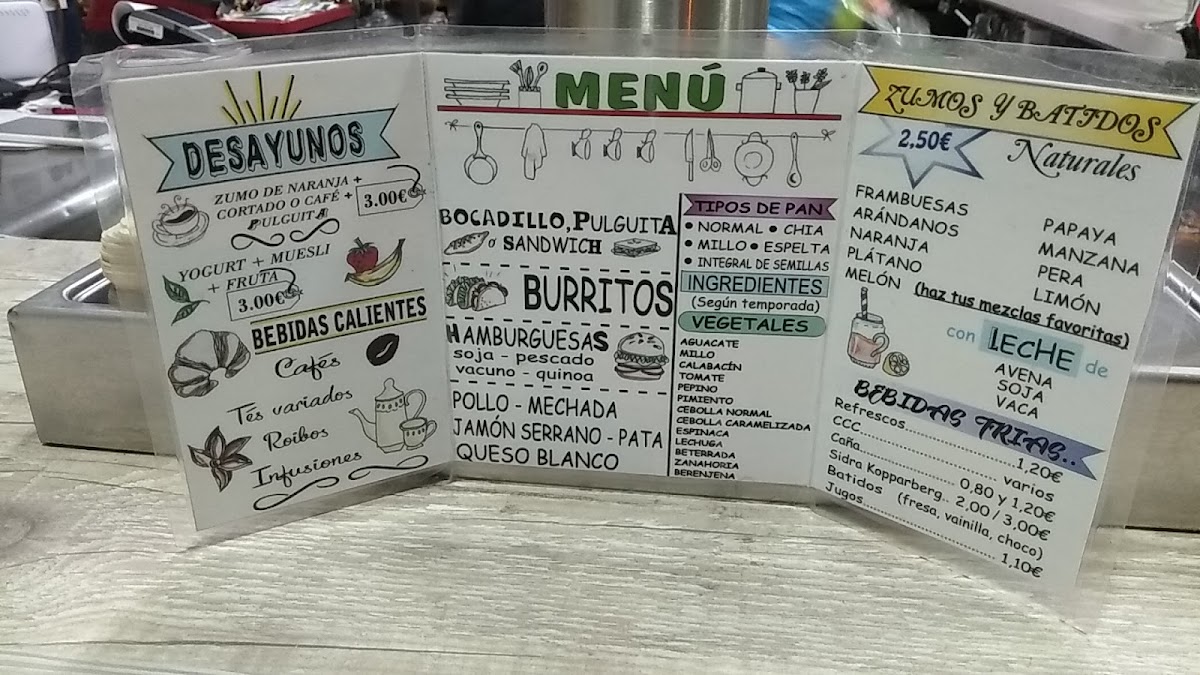 DESAYUNOS
ZUMO DE NARANJA +
CORTADO O CAFÉ +
PULGUITA
3.00€
YOGURT + MUESLI
+ FRUTA
3.00€
BEBIDAS CALIENTES
Cafés
Tés variados
Roibos
Infusiones
MENÚ
BOCADILLO, PULGUITA
o SANDWICH
BURRITOS
HAMBURGUESAS
soja - pescado
vacuno - quinoa
POLLO - MECHADA
JAMÓN SERRANO - PATA
QUESO BLANCO
TIPOS DE PAN
• NORMAL • CHIA
• MILLO • ESPELTA
• INTEGRAL DE SEMILLAS
INGREDIENTES
(Según temporada)
VEGETALES
AGUACATE
MILLO
CALABACÍN
TOMATE
PEPINO
PIMIENTO
CEBOLLA NORMAL
CEBOLLA CARAMELIZADA
ESPINACA
LECHUGA
BETERRADA
ZANAHORIA
BERENJENA
ZUMOS Y BATIDOS
2,50€
Naturales
FRAMBUESAS
ARÁNDANOS
NARANJA
PLÁTANO
MELÓN
PAPAYA
MANZANA
PERA
LIMÓN
(haz tus mezclas favoritas)
con LECHE de
AVENA
SOJA
VACA
BEBIDAS FRIAS..
Refrescos........................ 1,20€
CCC................................ varios
Caña........................ 0,80 y 1,20€
Sidra Kopparberg.. 2,00 / 3,00€
Batidos (fresa, vainilla, choco)
Jugos............................ 1,10€